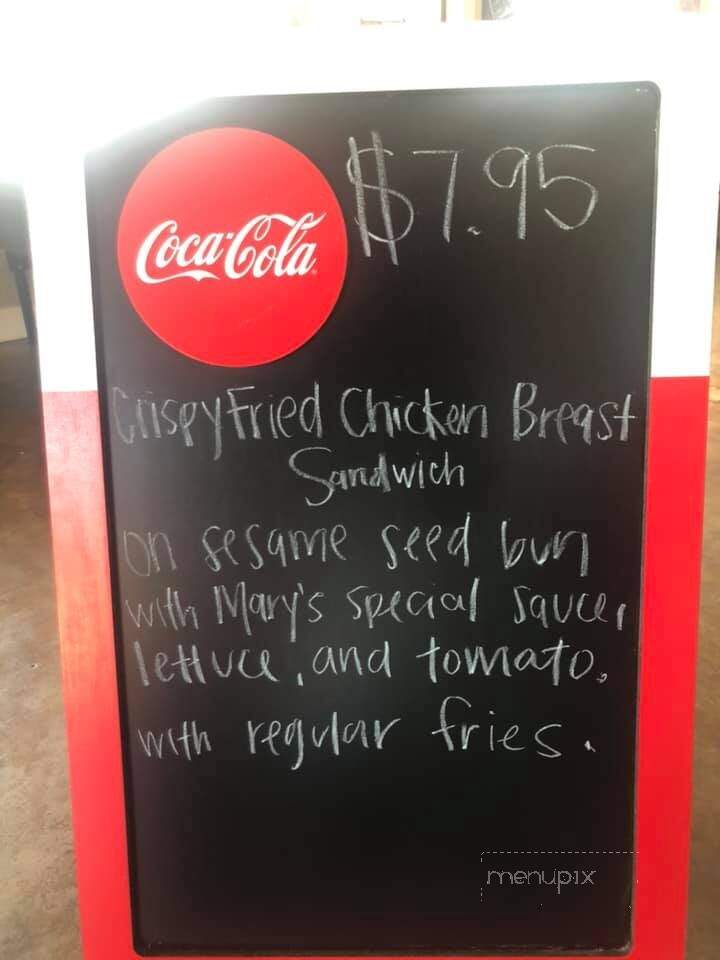 Coca-Cola
$7.95
Crispy Fried Chicken Breast
Sandwich
on sesame seed bun
with Mary's special sauce,
lettuce, and tomato.
with regular fries.
menupix